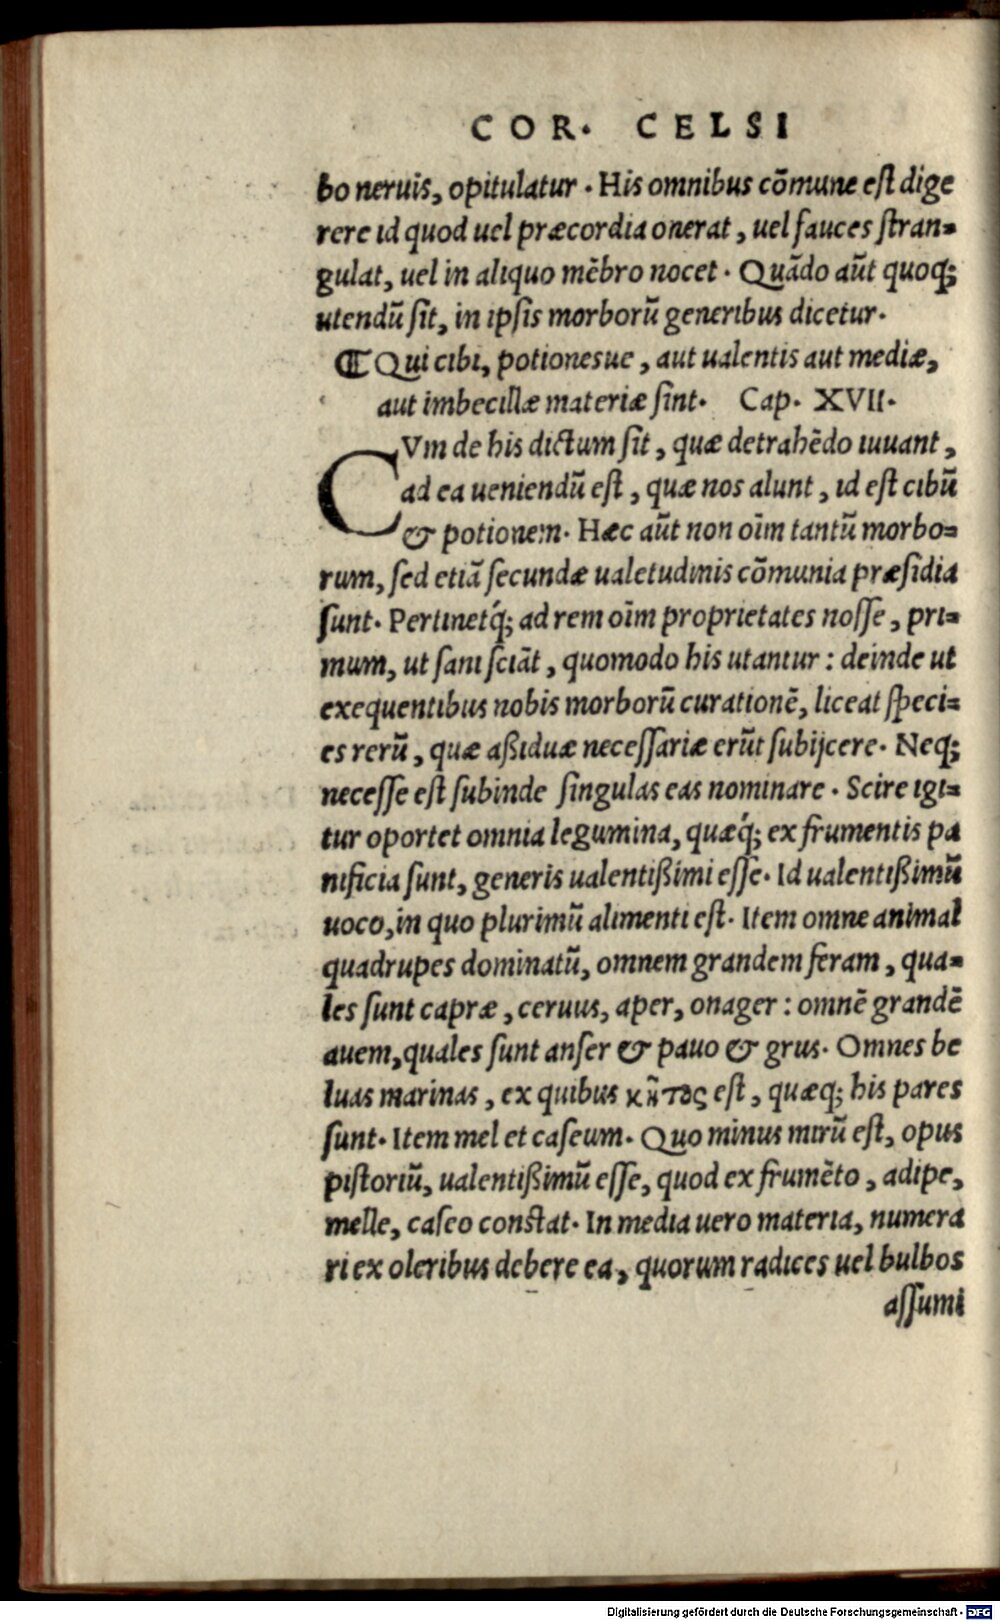 COR. CELSI
bo neruis, opitulatur. His omnibus cōmune est dige
rere id quod uel præcordia onerat, uel fauces stran-
gulat, uel in aliquo mēbro nocet. Quādo aūt quoq;
utendū sit, in ipsis morborū generibus dicetur.
¶ Qui cibi, potionesue, aut ualentis aut mediæ,
aut imbecillæ materiæ sint. Cap. XVII.
CVm de his dictum sit, quæ detrahēdo iuuant,
ad ea ueniendū est, quæ nos alunt, id est cibū
& potionem. Hæc aūt non oīm tantū morbo-
rum, sed etiā secundæ ualetudinis cōmunia præsidia
sunt. Pertinetq́; ad rem oīm proprietates nosse, pri-
mum, ut sani sciāt, quomodo his utantur: deinde ut
exequentibus nobis morborū curationē, liceat speci-
es rerū, quæ aßiduæ necessariæ erūt subijcere. Neq;
necesse est subinde singulas eas nominare. Scire igi-
tur oportet omnia legumina, quæq́; ex frumentis pa
nificia sunt, generis ualentißimi esse. Id ualentißimū
uoco, in quo plurimū alimenti est. Item omne animal
quadrupes dominatū, omnem grandem feram, qua-
les sunt capræ, ceruus, aper, onager: omnē grandē
auem, quales sunt anser & pauo & grus. Omnes be
luas marinas, ex quibus κῆτος est, quæq; his pares
sunt. Item mel et caseum. Quo minus mirū est, opus
pistoriū, ualentißimū esse, quod ex frumēto, adipe,
melle, caseo constat. In media uero materia, numera
ri ex oleribus debere ea, quorum radices uel bulbos
assumi
Digitalisierung gefördert durch die Deutsche Forschungsgemeinschaft - DFG